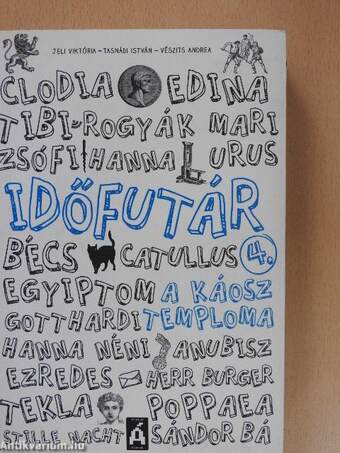 JELI VIKTÓRIA – TASNÁDI ISTVÁN – VÉSZITS ANDREA
CLODIA EDINA
TIBI-ROGYÁK MARI
ZSÓFI HANNA LURUS
IDŐFUTÁR
BÉCS CATULLUS 4.
EGYIPTOM A KÁOSZ
GOTTHARDI TEMPLOMA
HANNA NÉNI ANUBISZ
EZREDES HERR BURGER
TEKLA POPPAEA
STILLE NACHT Á SÁNDOR BÁ
Antikvarium.hu